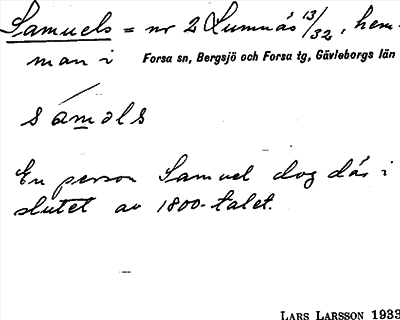 Samuels = nr 2 Lumnäs 13/32, hem-
man i Forsa sn, Bergsjö och Forsa tg, Gävleborgs län
sámols
En person Samuel dog där i
slutet av 1800-talet.
LARS LARSSON 1933